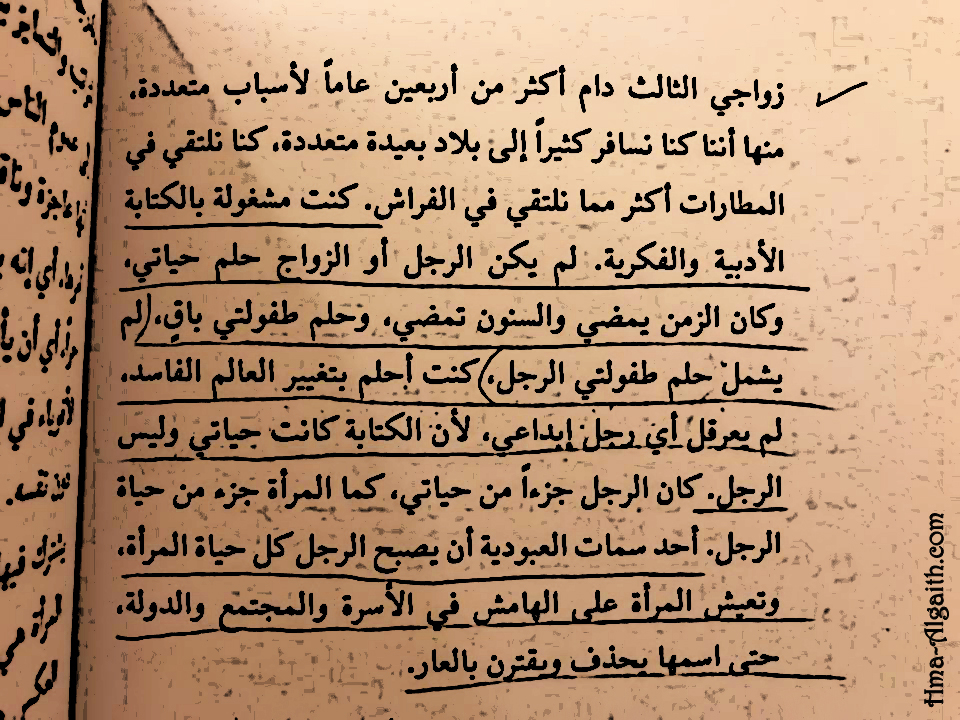 زواجي الثالث دام أكثر من أربعين عاماً لأسباب متعددة،
منها أننا كنا نسافر كثيراً إلى بلاد بعيدة متعددة، كنا نلتقي في
المطارات أكثر مما نلتقي في الفراش. كنت مشغولة بالكتابة
الأدبية والفكرية. لم يكن الرجل أو الزواج حلم حياتي،
وكان الزمن يمضي والسنون تمضي، وحلم طفولتي باقٍ، (لم
يشمل حلم طفولتي الرجل،) كنت أحلم بتغيير العالم الفاسد،
لم يعرقل أي رجل إبداعي، لأن الكتابة كانت حياتي وليس
الرجل. كان الرجل جزءاً من حياتي، كما المرأة جزء من حياة
الرجل. أحد سمات العبودية أن يصبح الرجل كل حياة المرأة،
وتعيش المرأة على الهامش في الأسرة والمجتمع والدولة،
حتى اسمها يحذف ويقترن بالعار.
Hma-Algaith.com